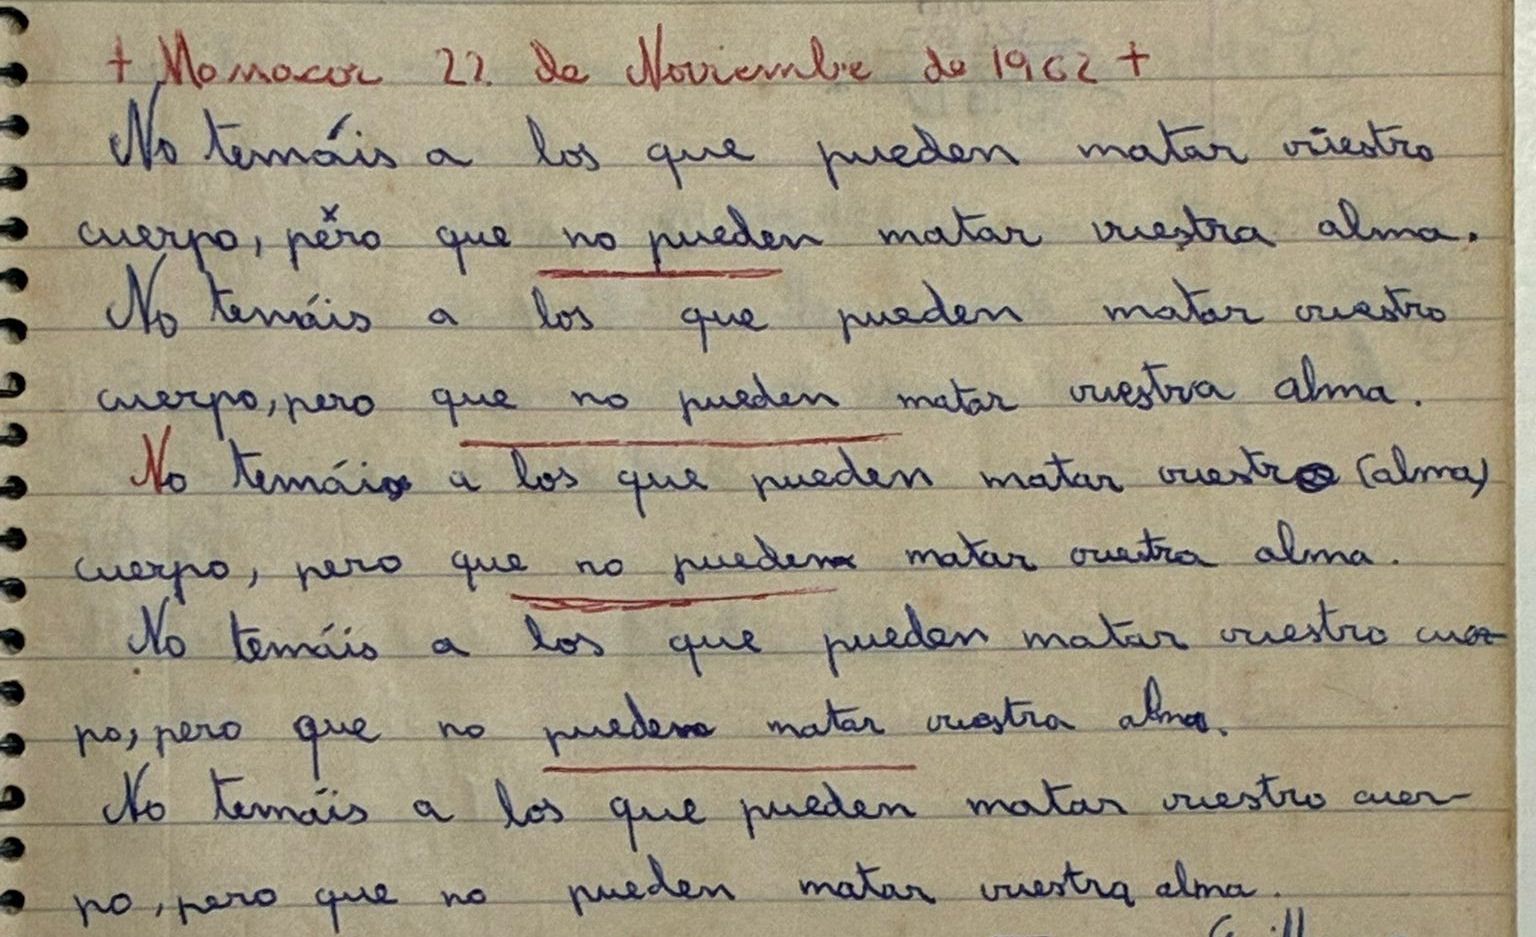 + Manacor 22 de Noviembre de 1962 +
No temáis a los que pueden matar vuestro
cuerpo, pero que no pueden matar vuestra alma.
No temáis a los que pueden matar vuestro
cuerpo, pero que no pueden matar vuestra alma.
No temáis a los que pueden matar vuestro (alma)
cuerpo, pero que no pueden matar vuestra alma.
No temáis a los que pueden matar vuestro cuer-
po, pero que no pueden matar vuestra alma.
No temáis a los que pueden matar vuestro cuer-
po, pero que no pueden matar vuestra alma.